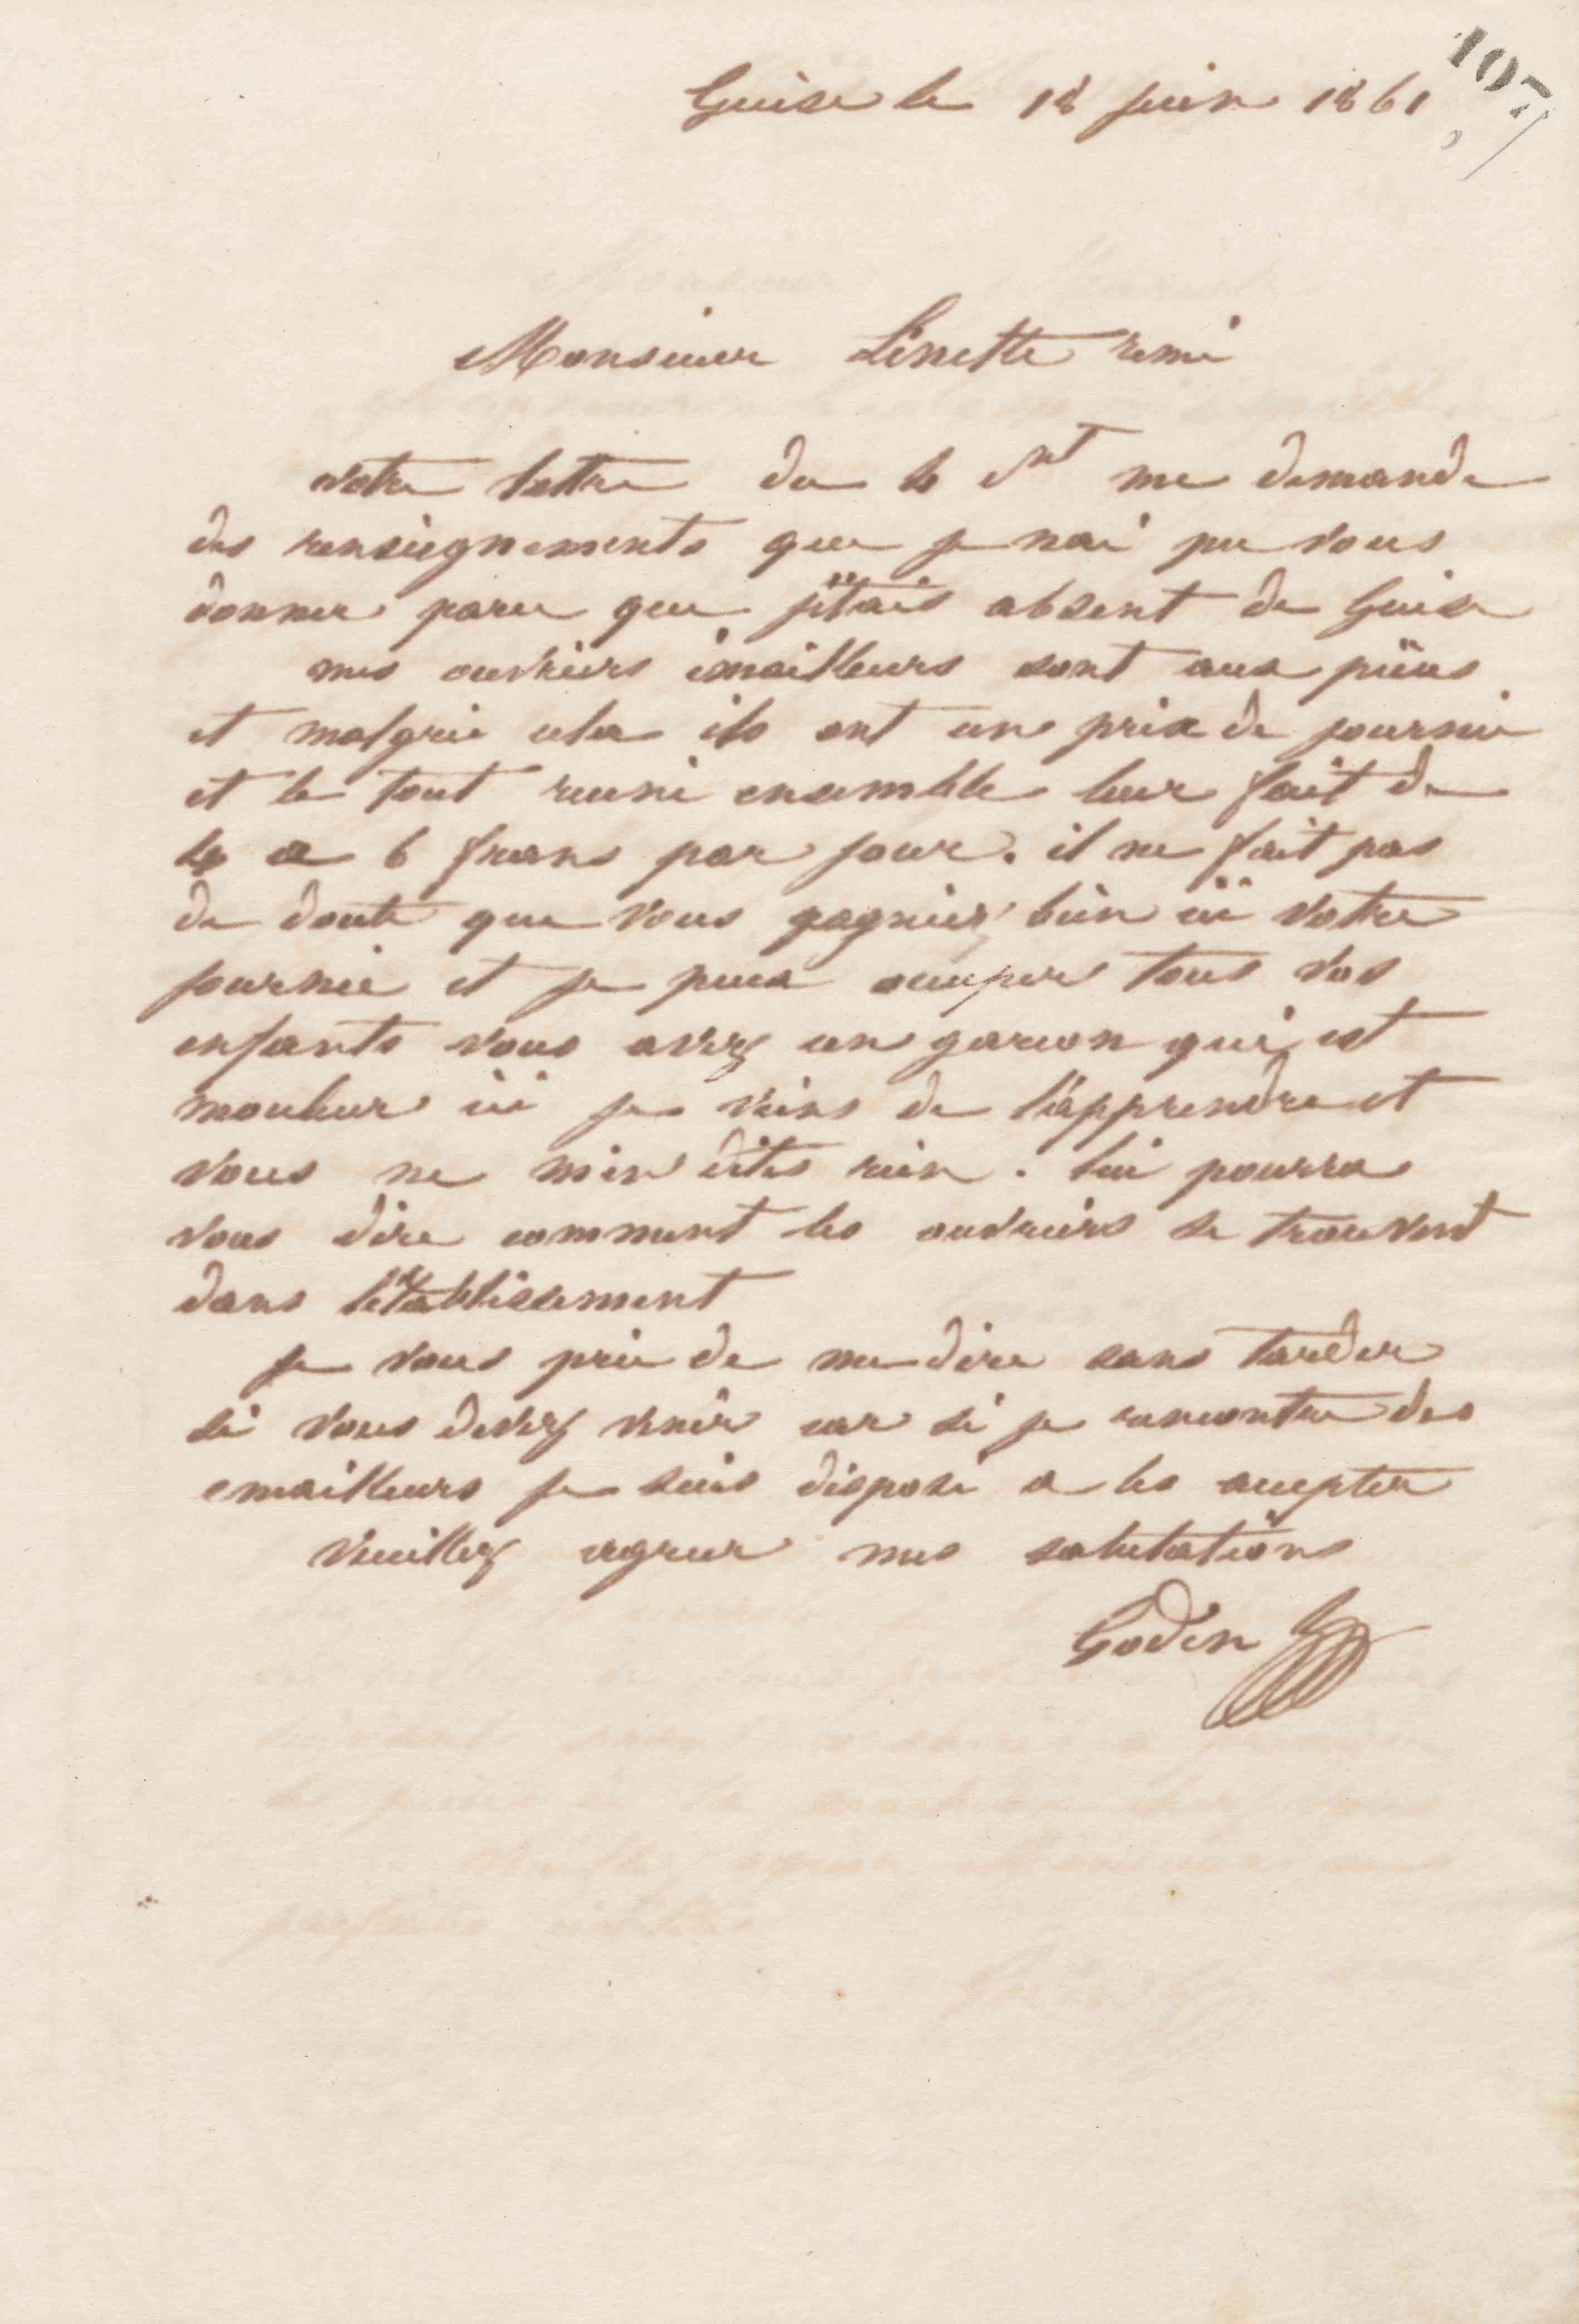 107
Guise le 18 juin 1861
Monsieur Linette remi
votre lettre du 4 cnt me demande
des renseignements que je nai pu vous
donner parce que jétais absent de Guise
mes ouvriers émailleurs sont aux pièces
et malgrié cela ils ont un prix de journée
et le tout reuni ensemble leur fait de
4 a 6 francs par jour. il ne fait pas
de doute que vous gagniez bien ici votre
journée et je puex occuper tous vos
enfants vous avez un garcon qui est
mouleur ici je viens de l'apprendre et
vous ne m'en dites rien. lui pourra
vous dire comment les ouvriers se trouvent
dans l'établissement
je vous prie de me dire sans tarder
si vous devez venir car si je rencontre des
emailleurs je suis disposé a les accepter
Veuillez agreer mes salutations
Godin